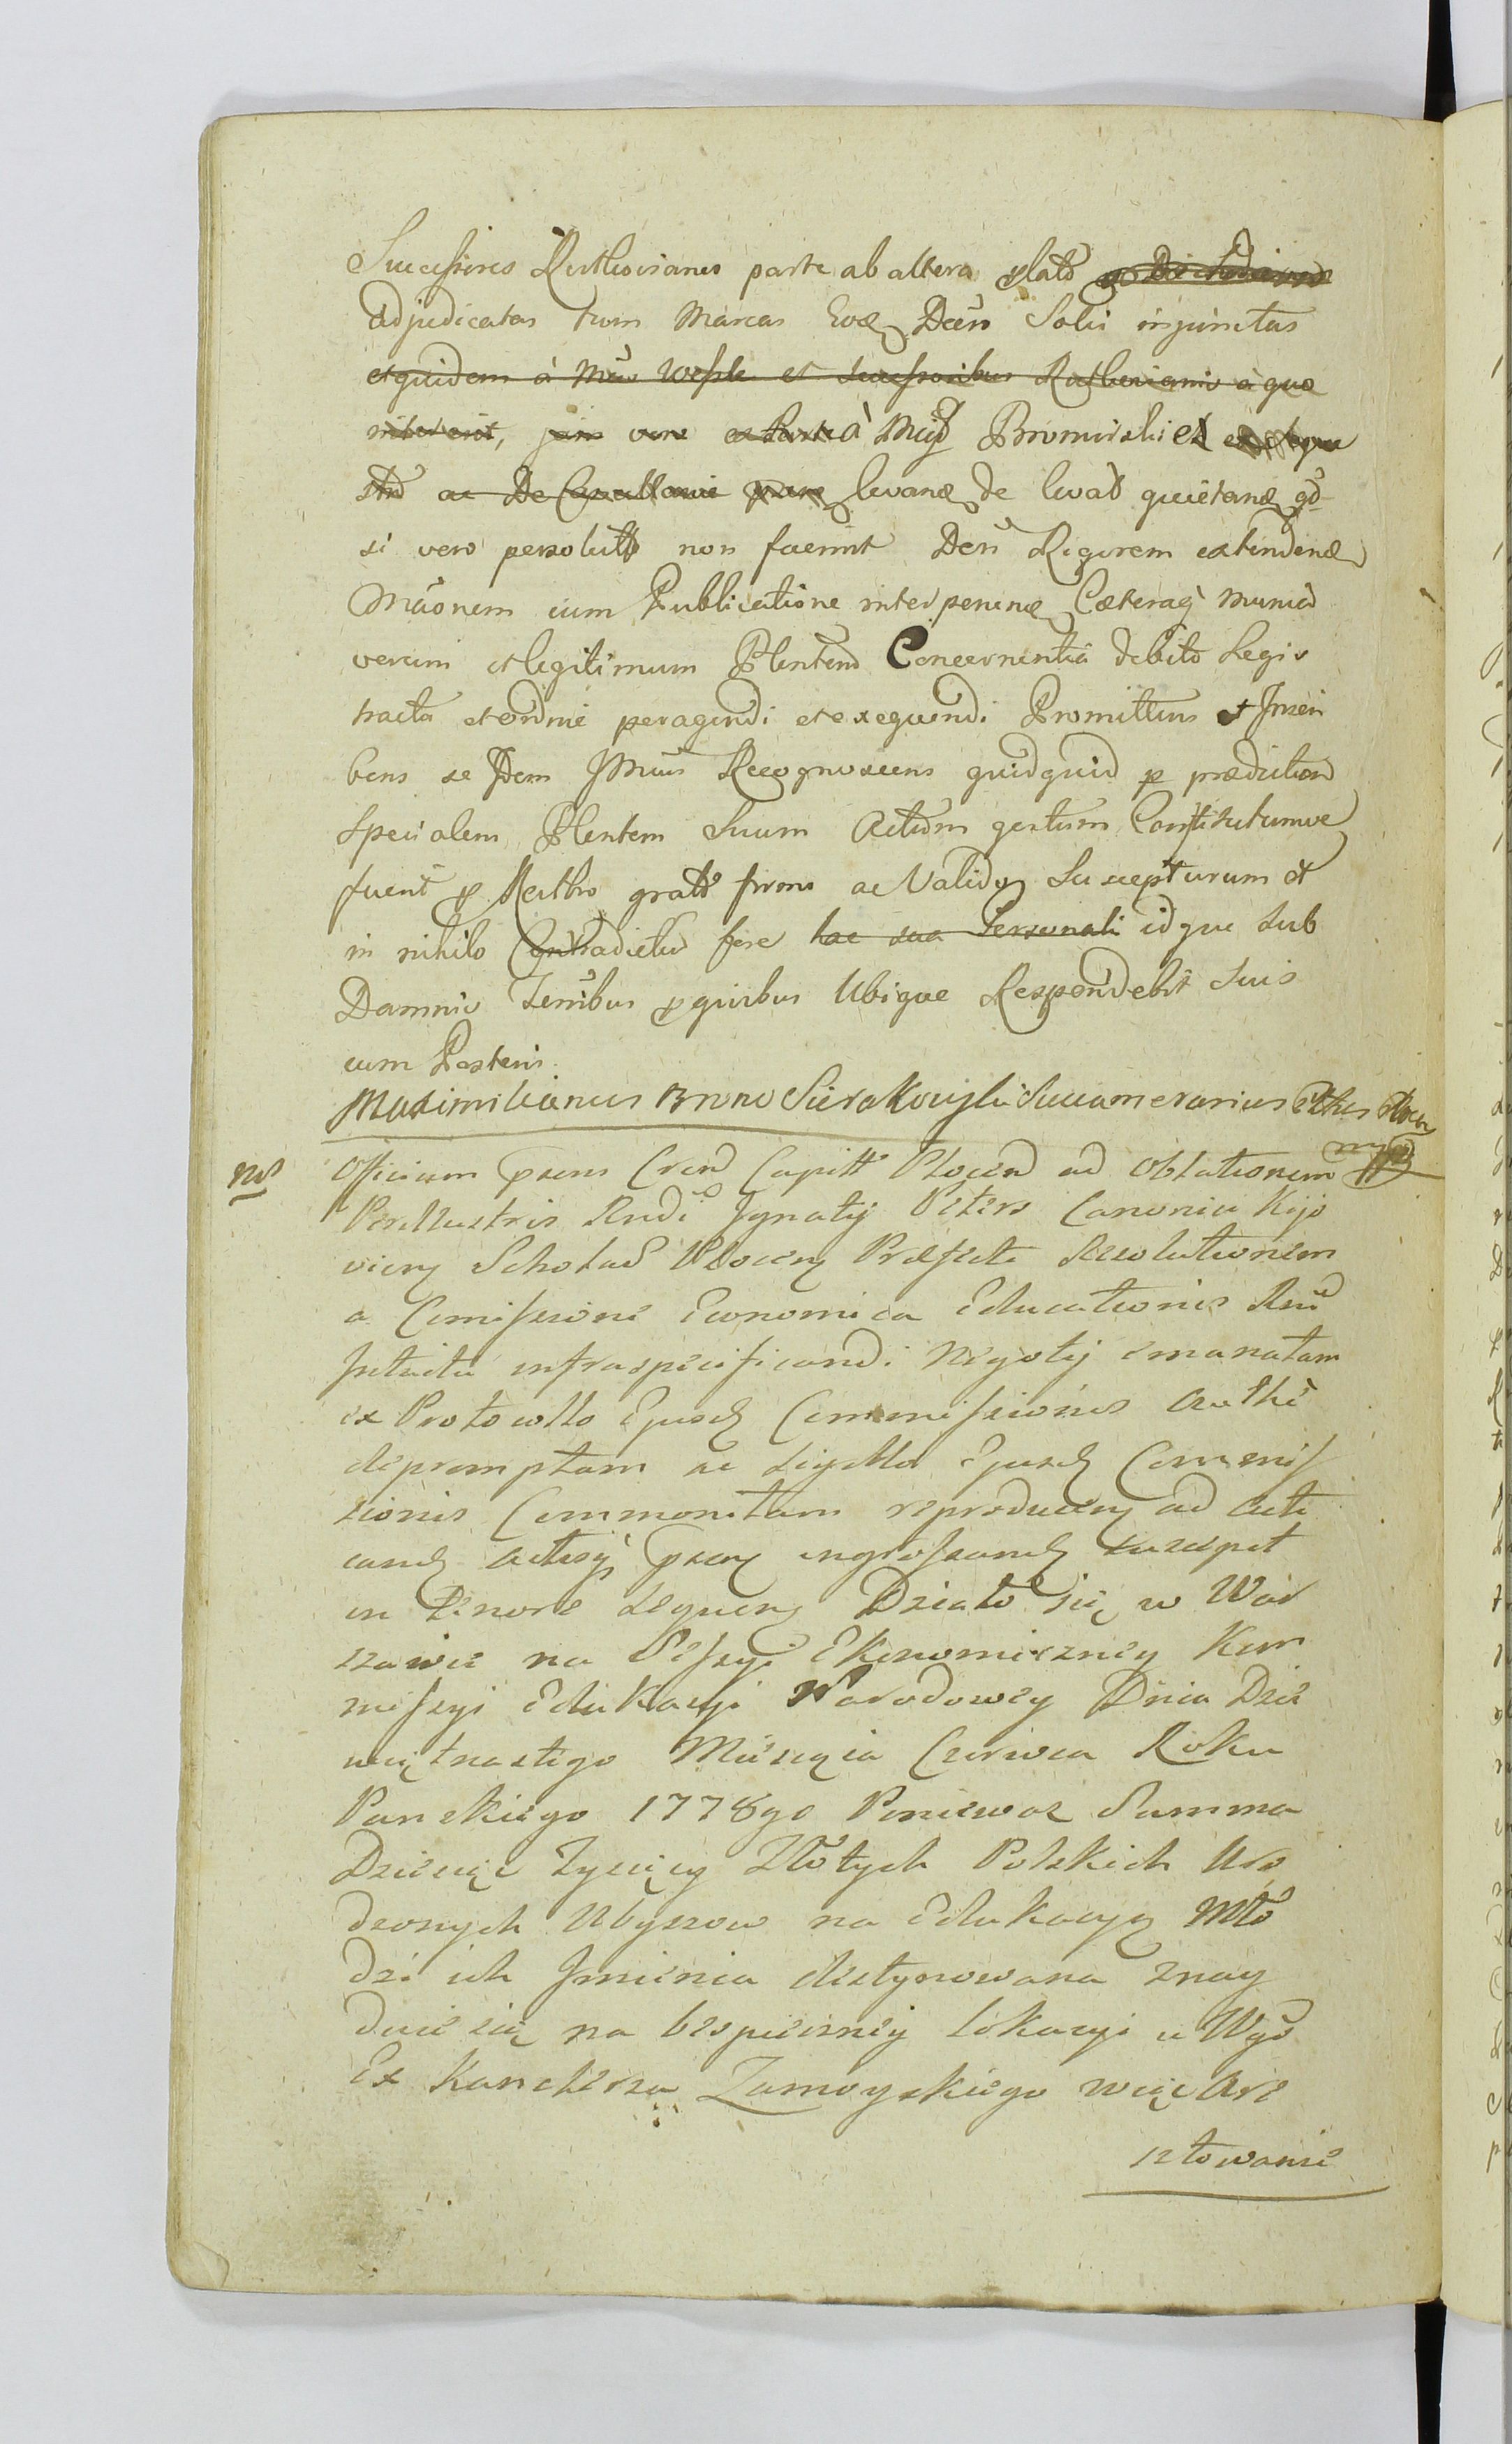 Successores Rutkovianos parte ab altera plato
adjudicatas tum Marcas Evæ Decre Solis injunctas
et quidem à Mco Wessle et Successoribus Rutkovianis a quo
intererit, jam vero ex Parte à Mcif Bromirski et
ac De levanæ de levat quietanæ qd
si vero persolutæ non fuerint Decri Rigorem extendenæ
Mãonem cum Publicatione interpenenæ Cæteraq munia
verum et legitimum Plentem Concernentia debito Legis
tractu et ordine peragendi et exequendi Promittens et Inscri
bens se Idem Imus Recognoscens quidquid p prædictum
specialem Plentem Suum Actum gestum Constitutumve
fuerit p Rectho gratt firmo ac Valido Suscepturum et
in nihilo Contradictu fore hac sua Personali idque Sub
Damnis Terribus p quibus Ubique Respondebit Suis
cum Posteris
Maximilianus Bruno Sierakowski Succamerarius
mp
nro
Officium præsens Cren Capitt Plocen ad Oblationem
Perillustris Rndi Ignatij Peters Canonici Kijo
vien Scholar Plocen Præfecti Resolutionem
a Comissione Economica Educationis Rni
Intuitu infraspecificandi Negotij emanatam
ex Protocollo Ejusd Commissionis Authe
depromptam ac Sigillo Ejusd Commis
sionis Communitam reproducen ad acti
cand actisq præsen ingrossand suscepit
in Tenore Sequen Działo się w War
szawie na Sessyi Ekonomiczney Kom
missyi Edukacyi Narodowey Dnia Dzie
więtnastego Miesiąca Czerwca Roku
Panskiego 1778go Ponieważ Summa
Dziesięć Tysięcy Złotych Polskich Uro
dzonych Ubyszow na Edukacyą Mło
dzi ich Imienia destynowana znay
duie się na bespieczney lokacyi u Wgo
Ex Kanclerza Zamoyskiego więc Are
sztowanie